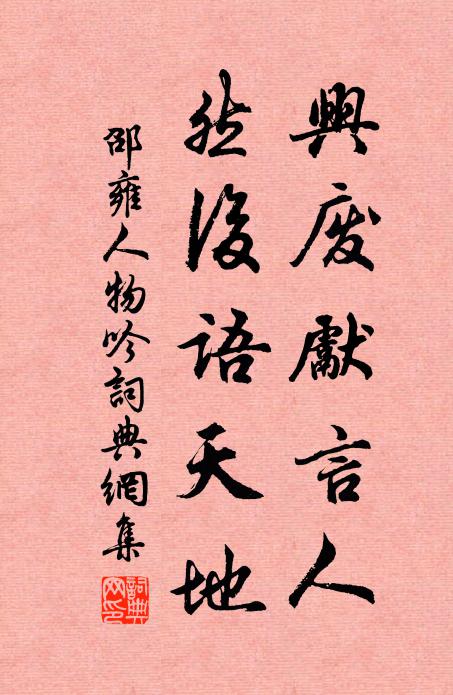 興廢獻言人
然後語天地
邵雍人物吟詞典網集
詞典
网印